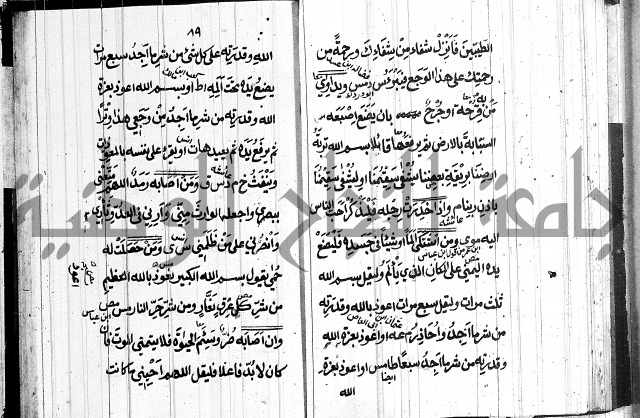 الطيبين فانزل شفاء من شفاءك ورحمة من
رحمتك على هذا الوجع فيبرء دس مس ويداوي
من قرحة او جرح بان يضع اصبعه
السبابة بالارض ثم يرفعها قائلا بسم الله تربة
ارضنا بريقة بعضنا يشفى سقيمنا او ليشفى سقيمنا
باذن ربنا م واذا خدرت رجله فليذكر احب الناس
اليه موى ومن اشتكى الما او شيئا في جسده فليضع
يده اليمنى على المكان الذي يألم وليقل بسم الله
ثلث مرات وليقل سبع مرات اعوذ بالله وقدرته
من شر ما اجد واحاذر م عه او اعوذ بعزة الله
وقدرته من شر ما اجد سبعا طا مس او اعوذ بعزة
الله
٨٩
الله وقدرته على كل شيء من شر ما اجد سبع مرات
يضع يده تحت المه اط او بسم الله اعوذ بعزة
الله وقدرته من شر ما اجد من وجعي هذا وترا
ثم يرفع يده ثم يعيدها ت او يقرء على نفسه بالمعوذات
وينفث خ م د س ق ومن اصابه رمد اللهم متعني
ببصري واجعله الوارث مني وارني في العدو ثأري
وانصرني على من ظلمني مس ي ومن حصلت له
حمى يقول بسم الله الكبير نعوذ بالله العظيم
من شر كل عرق نعار ومن شر حر النار مس مص
وان اصابه ضر وسئم الحيوة فلا يتمنى الموت فان
كان لا بد فاعلا فليقل اللهم احيني ما كانت
جامعة النجاح الوطنية